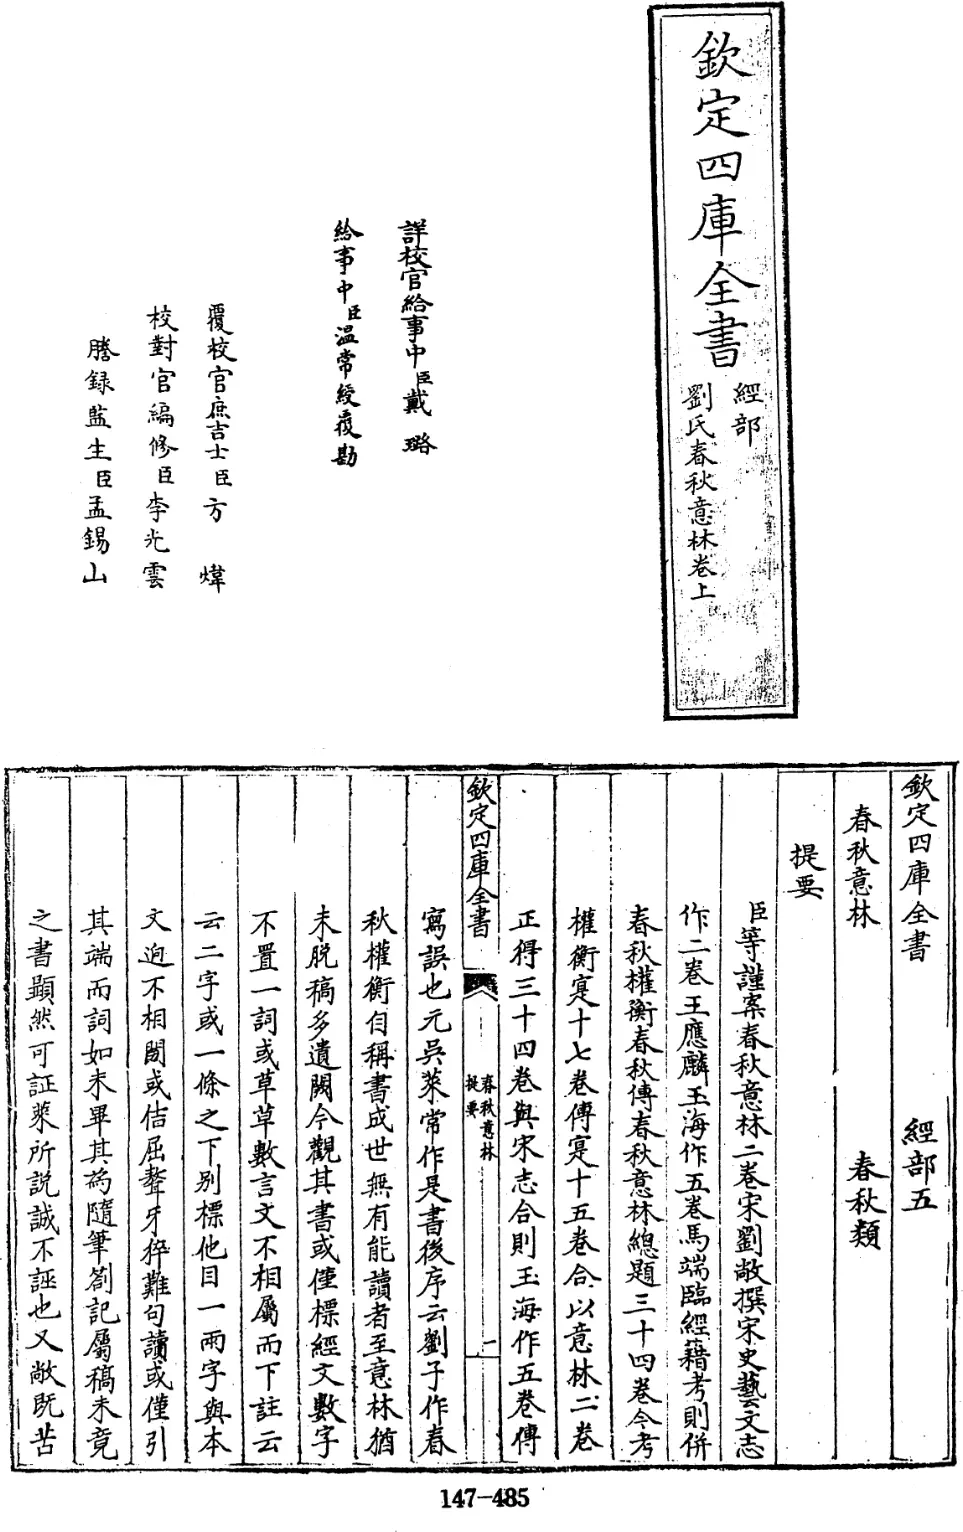 欽定四庫全書
經部
劉氏春秋意林卷上
詳校官給事中臣戴璐
給事中臣温常綬覆勘
覆校官庶吉士臣方煒
校對官編修臣李光雲
謄録監生臣孟錫山
欽定四庫全書 經部五
春秋意林 春秋類
提要
臣等謹案春秋意林二卷宋劉敞撰宋史藝文志
作二卷王應麟玉海作五卷馬端臨經籍考則併
春秋權衡春秋傳春秋意林總題三十四卷今考
權衡寔十七卷傳寔十五卷合以意林二卷
正得三十四卷與宋志合則玉海作五卷傳
欽定四庫全書
春秋意林
提要
一
寫誤也元吳萊常作是書後序云劉子作春
秋權衡自稱書成世無有能讀者至意林猶
未脱稿多遺闕今觀其書或僅標經文數字
不置一詞或草草數言文不相屬而下註云
云二字或一條之下别標他目一兩字與本
文逈不相關或佶屈聱牙猝難句讀或僅引
其端而詞如未畢其為隨筆劄記屬稿未竟
之書顯然可証萊所説誠不誣也又敞既苦
147-485